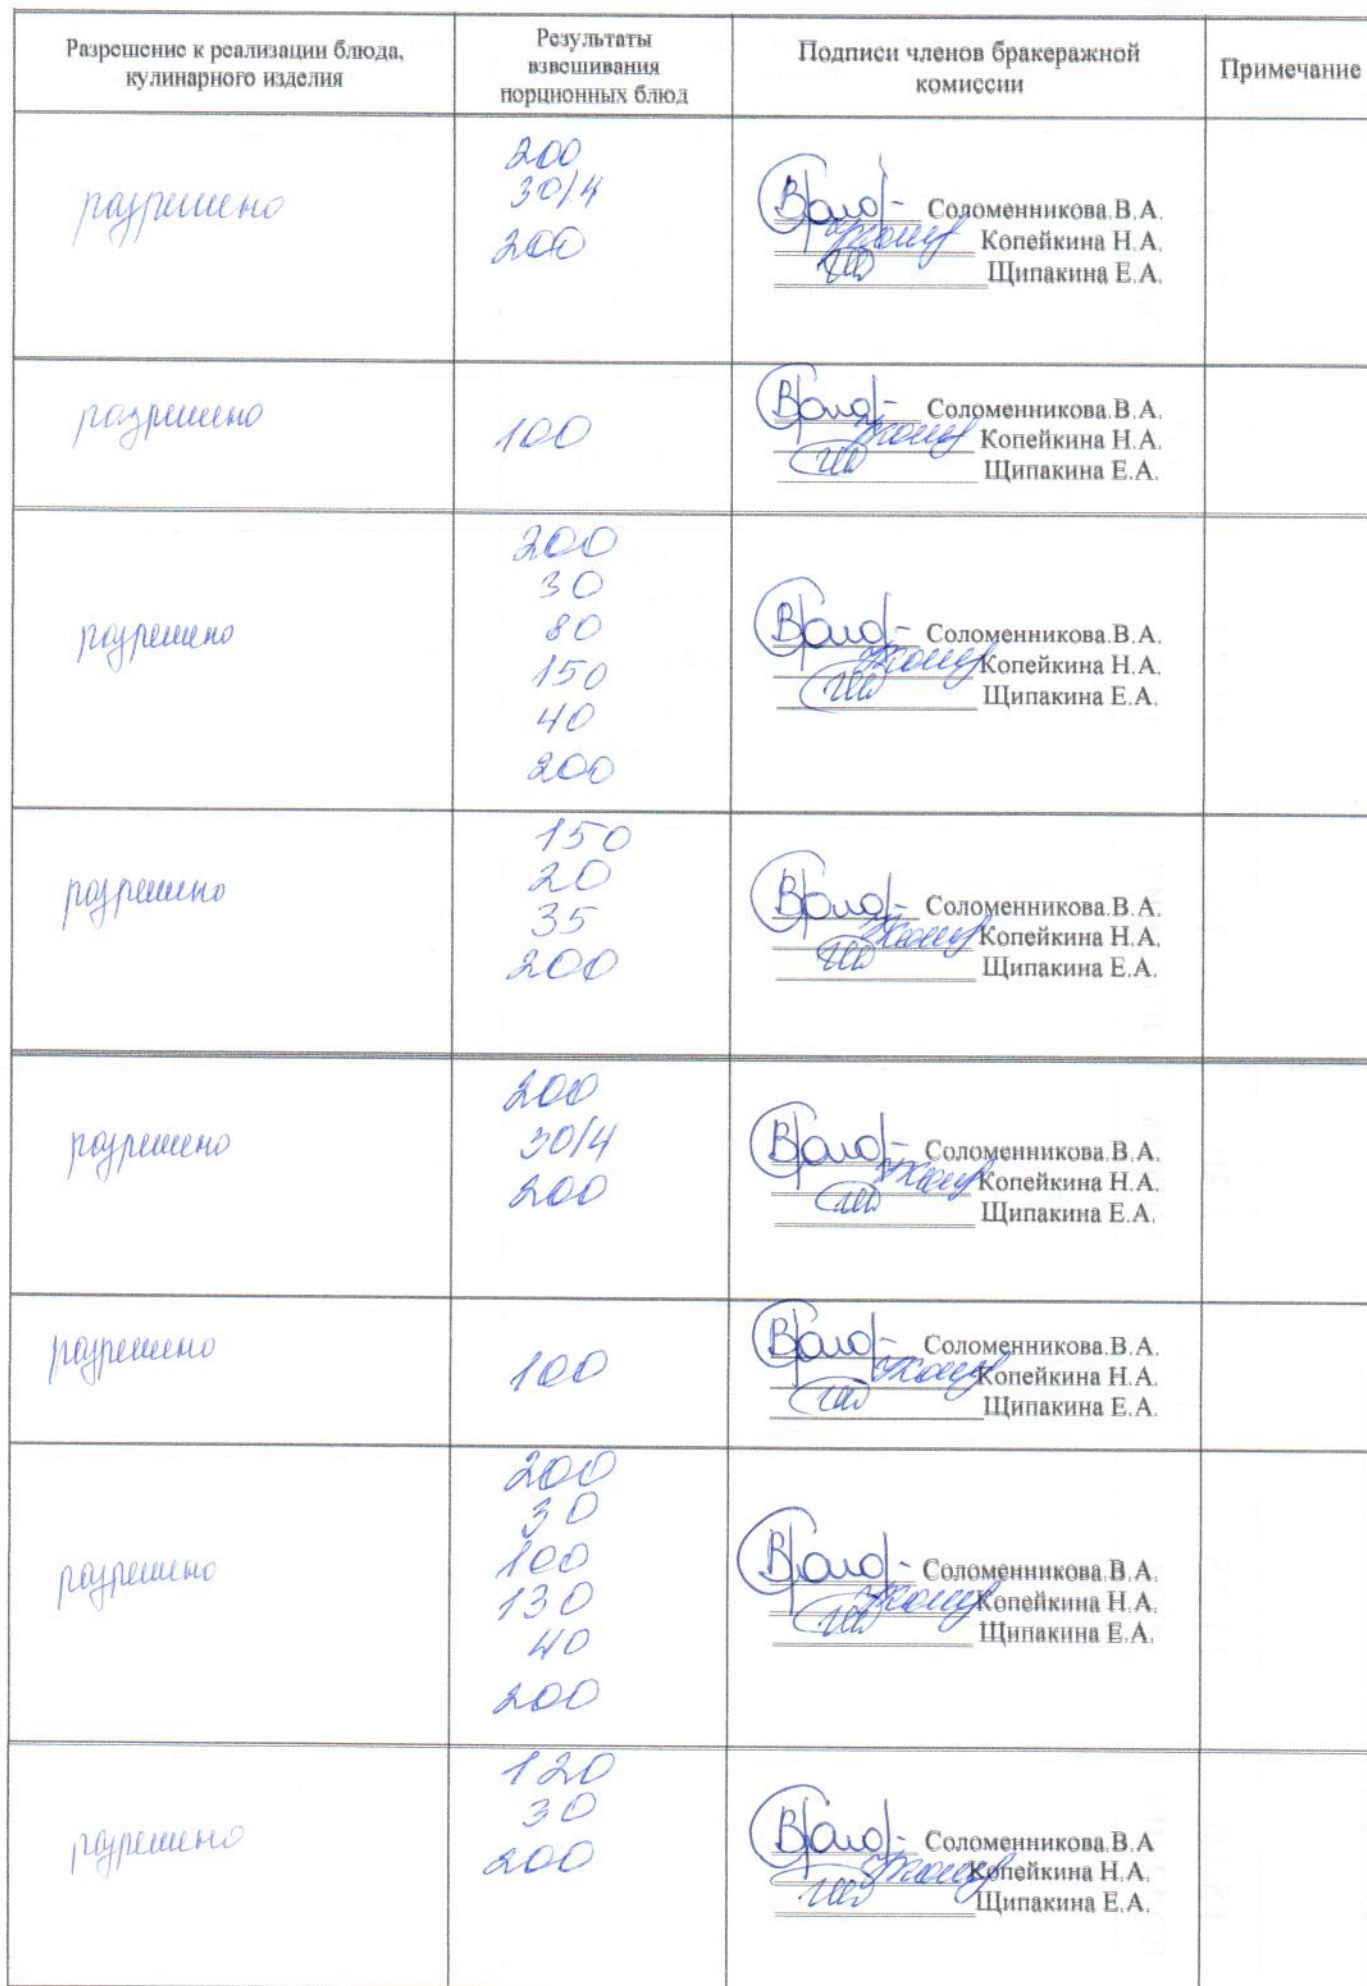 Разрешение к реализации блюда,
кулинарного изделия
Результаты
взвешивания
порционных блюд
Подписи членов бракеражной
комиссии
Примечание
разрешено
200
30/4
200
Соломенникова.В.А.
Копейкина Н.А.
Щипакина Е.А.
разрешено
100
Соломенникова.В.А.
Копейкина Н.А.
Щипакина Е.А.
разрешено
200
30
80
150
40
200
Соломенникова.В.А.
Копейкина Н.А.
Щипакина Е.А.
разрешено
150
20
35
200
Соломенникова.В.А.
Копейкина Н.А.
Щипакина Е.А.
разрешено
200
30/4
200
Соломенникова.В.А.
Копейкина Н.А.
Щипакина Е.А.
разрешено
100
Соломенникова.В.А.
Копейкина Н.А.
Щипакина Е.А.
разрешено
200
30
100
130
40
200
Соломенникова.В.А.
Копейкина Н.А.
Щипакина Е.А.
разрешено
120
30
200
Соломенникова.В.А
Копейкина Н.А.
Щипакина Е.А.